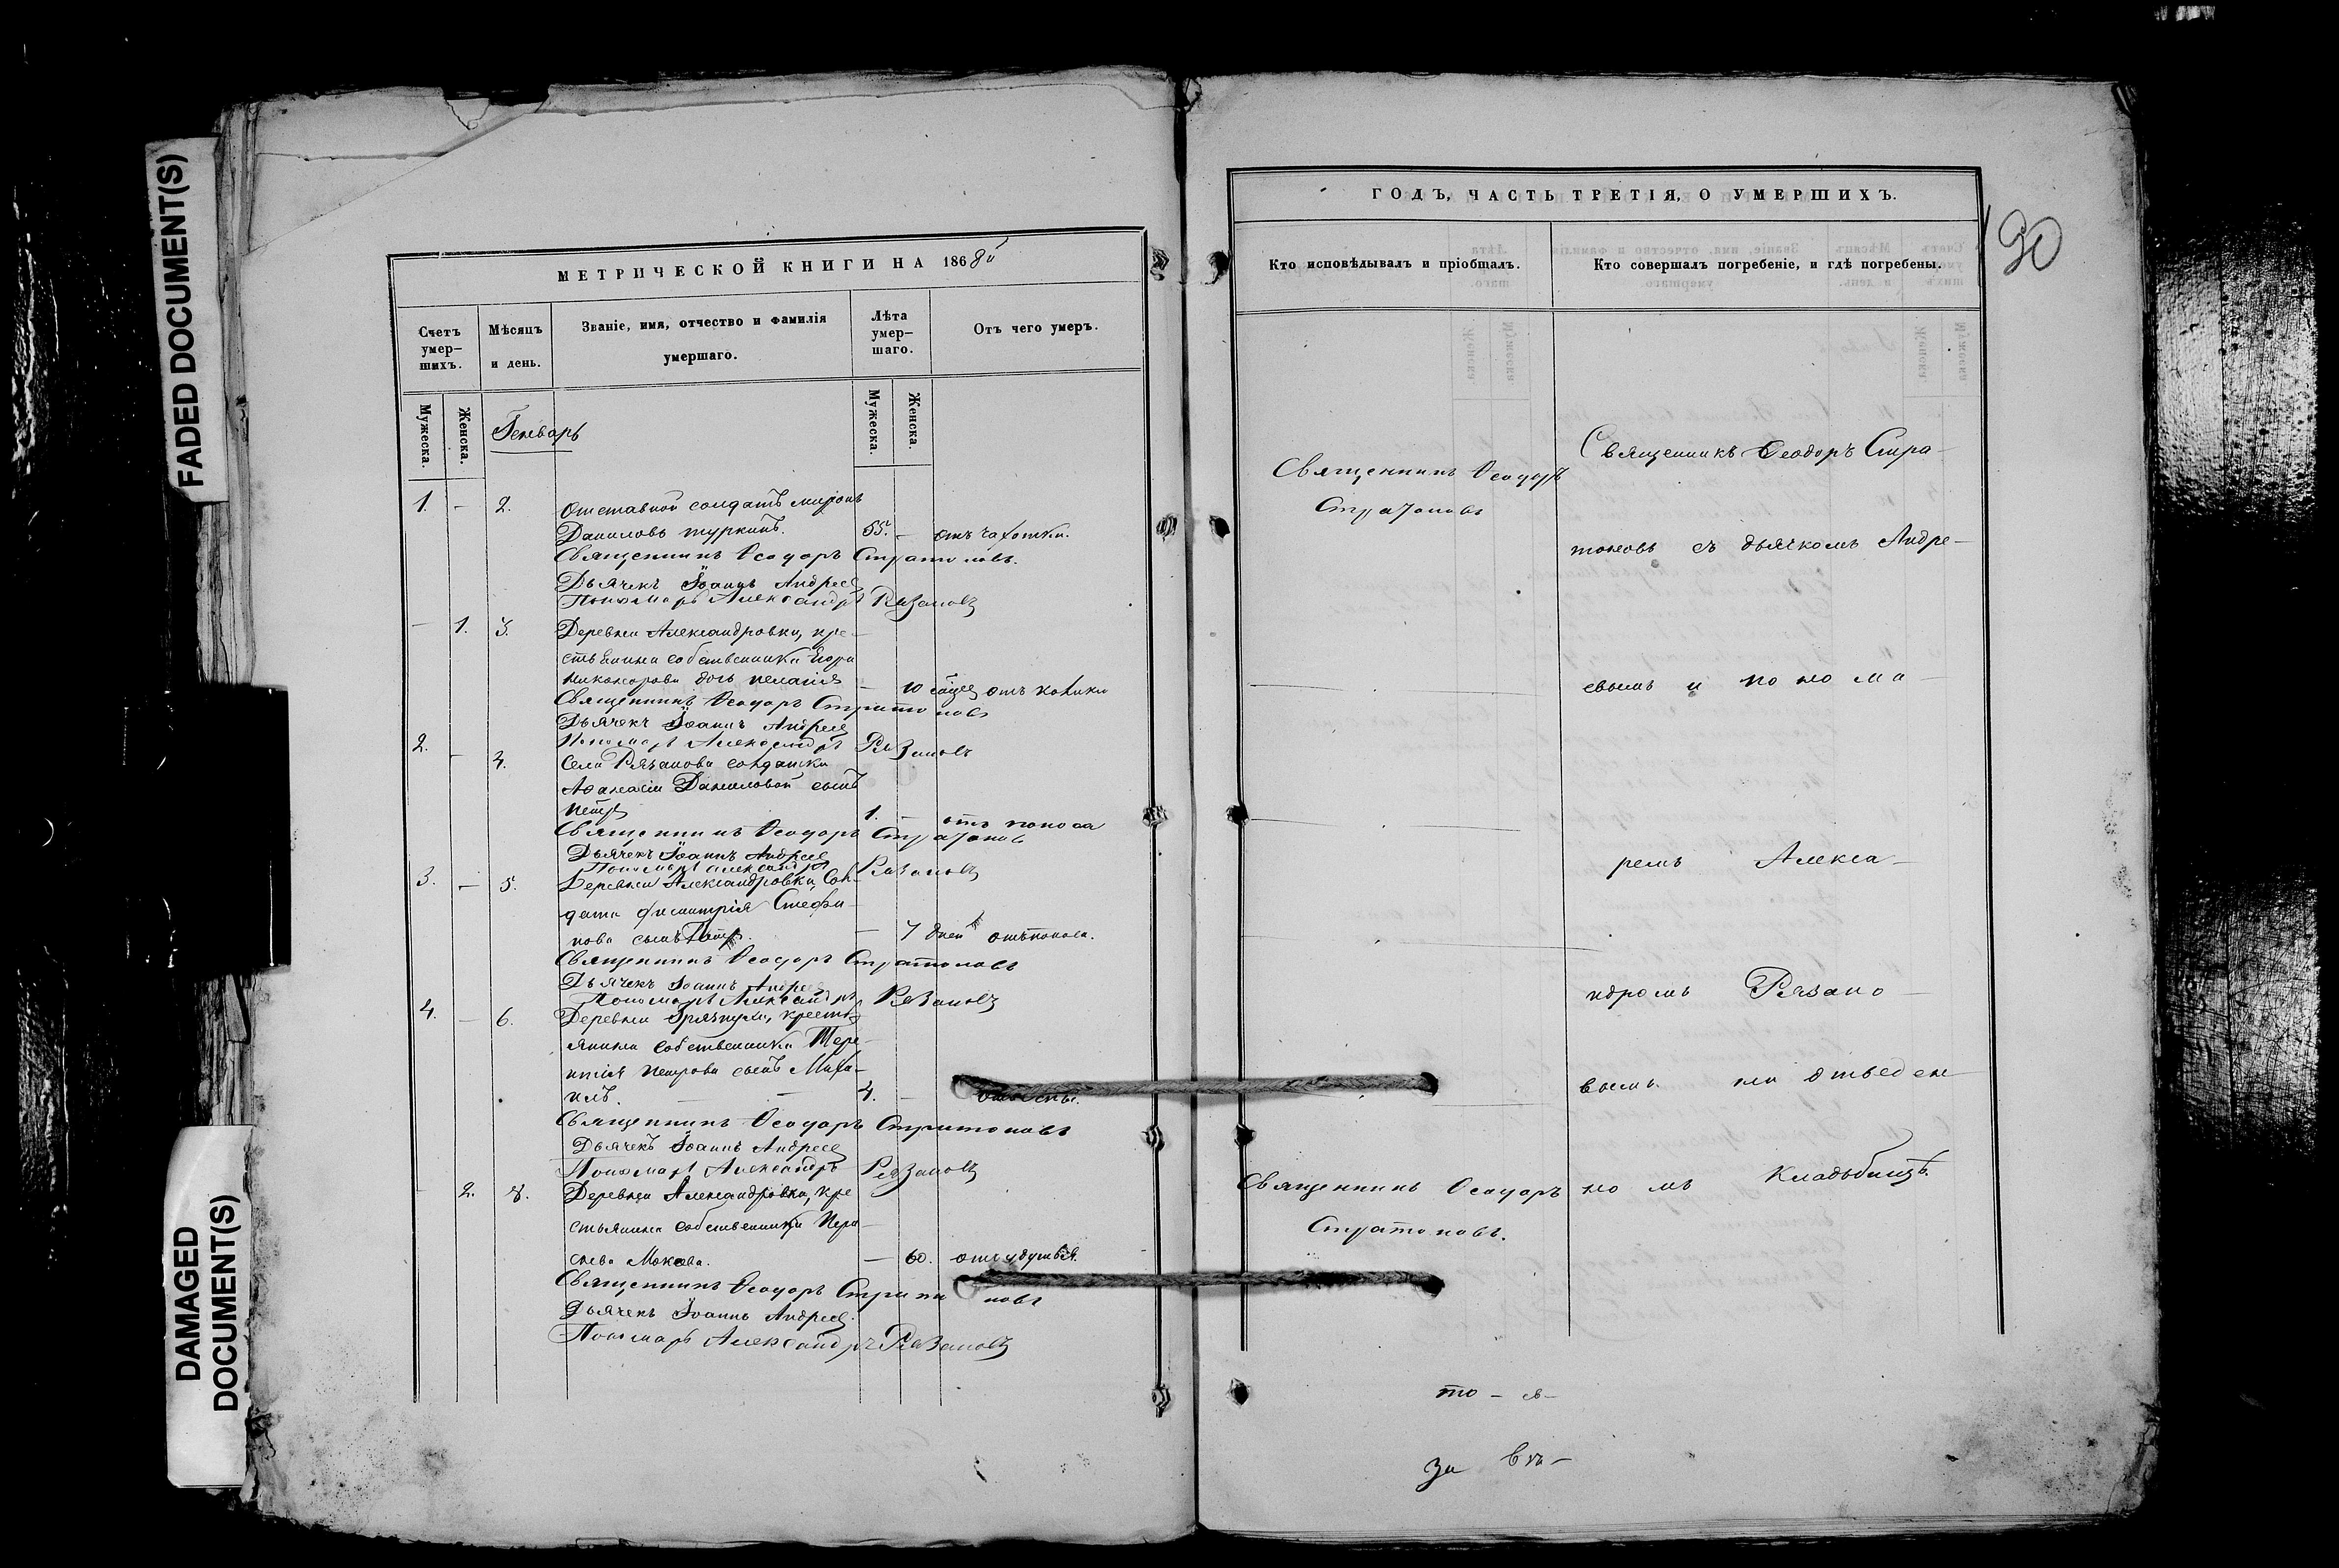 FADED DOCUMENT(S)
DAMAGED
DOCUMENT(S)
МЕТРИЧЕСКОЙ КНИГИ НА 1868й
Счетъ умер-шихъ.
Мѣсяцъ и день.
Званіе, имя, отчество и фамилія умершаго.
Лѣта умер-шаго.
Отъ чего умеръ.
Мужеска. Женска.
Мужеска. Женска.
Генварь
1. - 2. Отставной солдатъ Миронъ
Даниловъ Туркинъ. 55. - отъ чахотки.
Священникъ Ѳеодоръ Стратоновъ.
Дьячекъ Іоаннъ Андреев
Пономарь Александръ Рязановъ
- 1. 3. Деревни Александровки, кре-
стьянина собственника Егора
Никонорова дочь Пелагія - 10 отъ колики
Священникъ Ѳеодоръ Стратоновъ
Дьячекъ Іоаннъ Андреев
Пономарь Александръ Рязановъ
2. - 4. Села Рязанова солдатки
Аѳанасіи Даниловой сынъ
Петръ 1. - отъ поноса
Священникъ Ѳеодоръ Стратоновъ
Дьячекъ Іоаннъ Андреев
Пономарь Александръ Рязановъ
3. - 5. Деревни Александровки, Сол-
дата Димитрія Стефа-
нова сынъ Петръ. - 7 дней отъ поноса.
Священникъ Ѳеодоръ Стратоновъ
Дьячекъ Іоаннъ Андреев
Пономарь Александръ Рязановъ
4. - 6. Деревни кресть-
янина собственника Тере-
нтія Петрова сынъ Миха-
илъ. - - 4. - оспы.
Священникъ Ѳеодоръ Стратоновъ
Дьячекъ Іоаннъ Андреев
Пономарь Александръ Рязановъ
- 2. 8. Деревни Александровки, кре
стьянина собственника
- 60. отъ удушья.
Священникъ Ѳеодоръ Стратоновъ
Дьячекъ Іоаннъ Андреев.
Пономарь Александръ Рязановъ
ГОДЪ, ЧАСТЬ ТРЕТІЯ, О УМЕРШИХЪ.
90
Кто исповѣдывалъ и пріобщалъ.
Кто совершалъ погребеніе, и гдѣ погребены.
Священникъ Ѳеодоръ
Стратоновъ
Священникъ Ѳеодоръ Стра-
тоновъ съ дьячкомъ Андре-
евымъ и понома-
ремъ Алекса-
ндромъ Рязано-
вымъ на отведен-
номъ Кладьбищѣ.
Священникъ Ѳеодоръ
Стратоновъ.
то - я-
за въ-